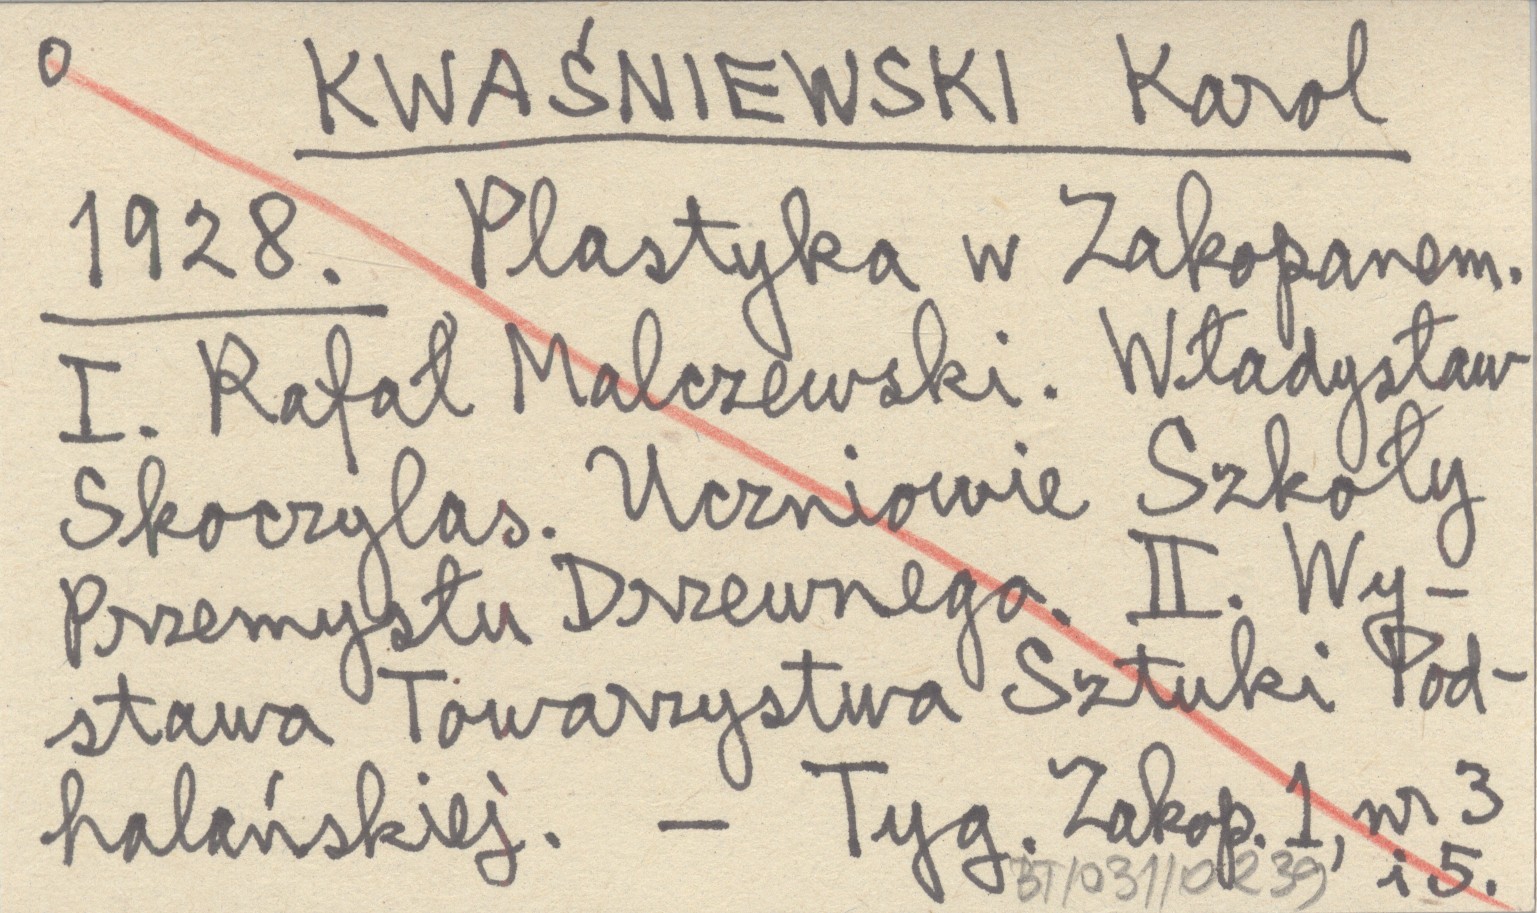 O KWAŚNIEWSKI Karol
1928. Plastyka w Zakopanem.
I. Rafał Malczewski. Władysław
Skoczylas. Uczniowie Szkoły
Przemysłu Drzewnego. II. Wy-
stawa Towarzystwa Sztuki Pod-
halańskiej. – Tyg. Zakop. 1, nr 3
i 5.
BT/031/0239